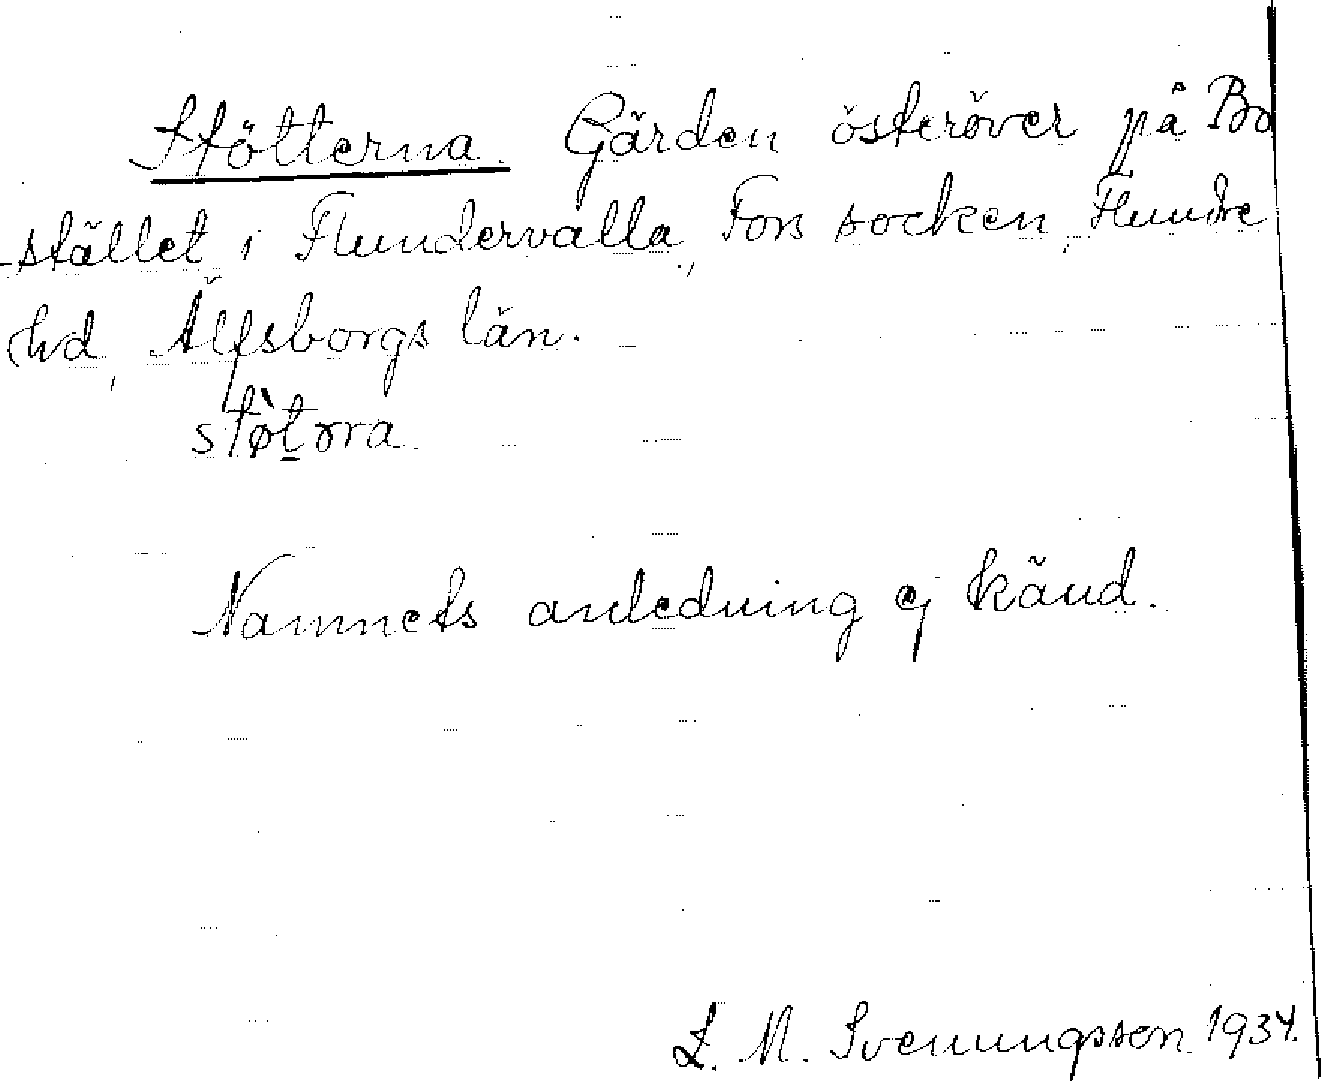 Stötterna. Gärden österöver på Bo
stället i Flundervalla, Fors socken, Flundre
hd, Älfsborgs län.
støt̲ɷra
Namnets anledning ej känd.
L. M. Svenungsson 1934.